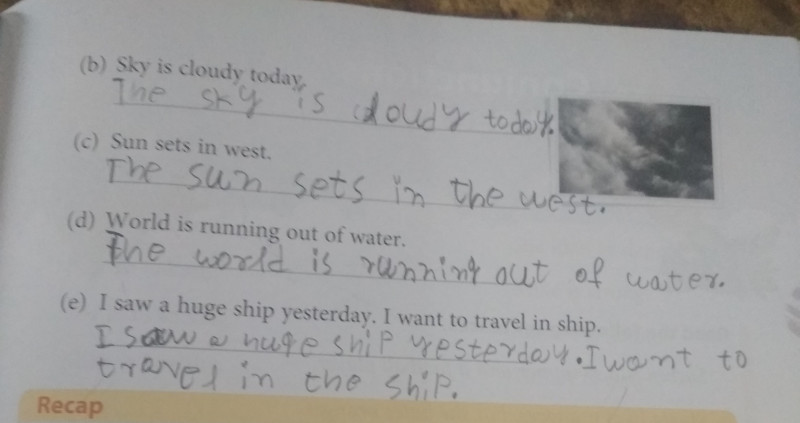 (b) Sky is cloudy today.
The sky is cloudy today.
(c) Sun sets in west.
The sun sets in the west.
(d) World is running out of water.
The world is running out of water.
(e) I saw a huge ship yesterday. I want to travel in ship.
I saw a huge ship yesterday. I want to
travel in the ship.
Recap